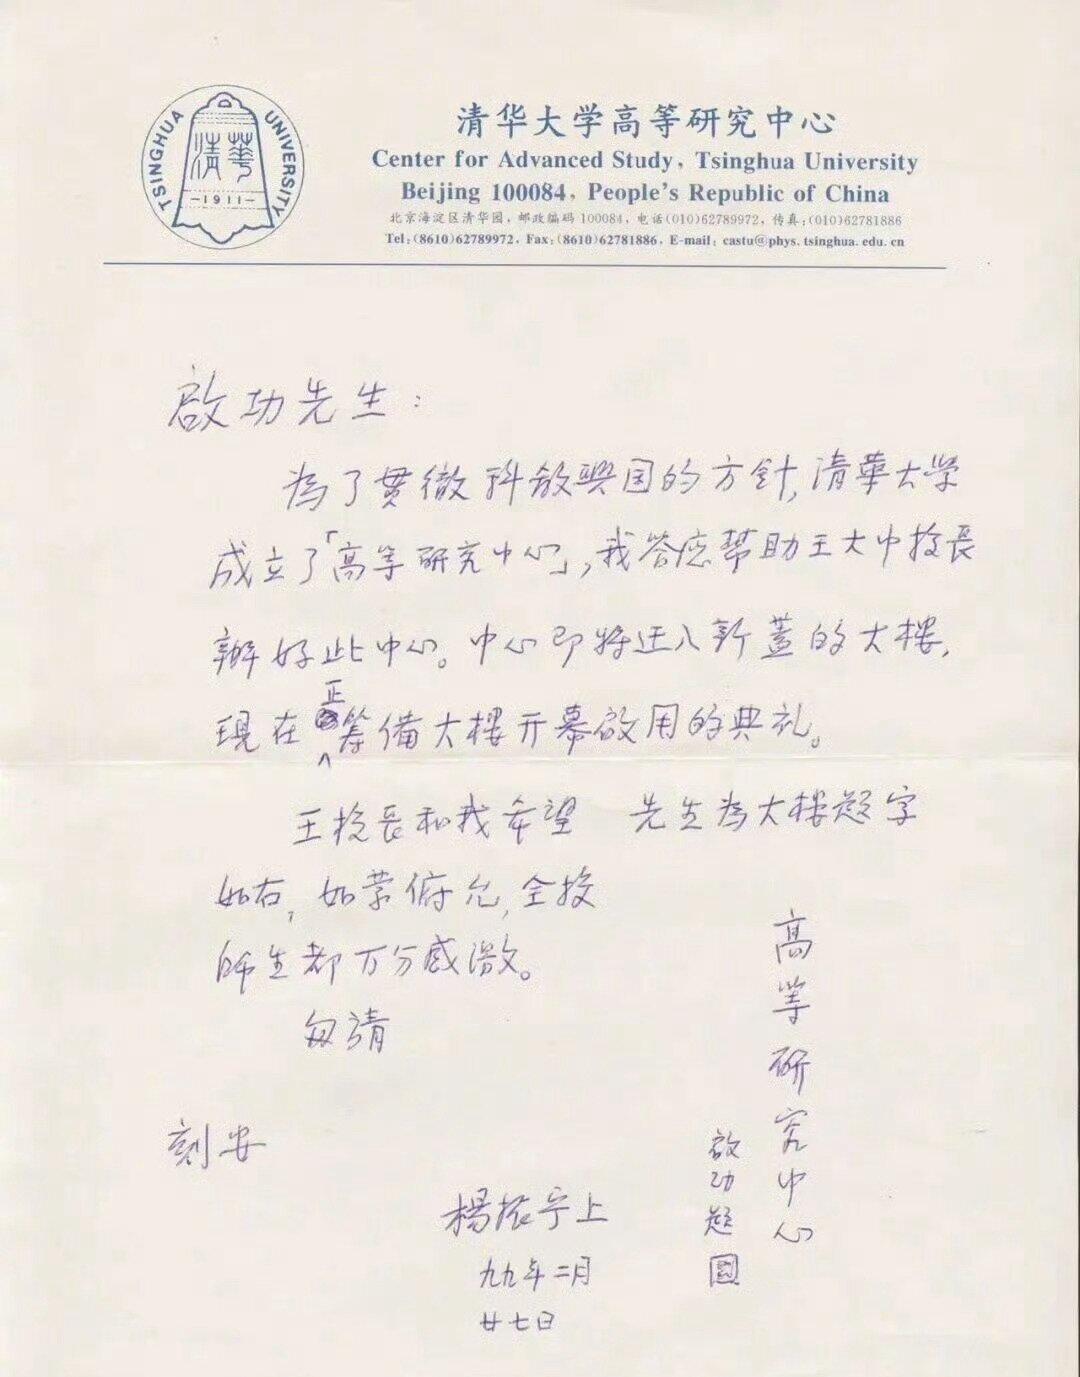 TSINGHUA UNIVERSITY
清華
-1911-
清华大学高等研究中心
Center for Advanced Study, Tsinghua University
Beijing 100084, People's Republic of China
北京海淀区清华园, 邮政编码 100084, 电话(010)62789972, 传真:(010)62781886
Tel:(8610)62789972, Fax:(8610)62781886, E-mail: castu@phys.tsinghua.edu.cn
啟功先生:
為了贯徹科教興国的方針,清華大学
成立了「高等研究中心」,我答应幫助王大中校長
辦好此中心。中心即将迁入新蓋的大楼,
現在正籌備大楼开幕啟用的典礼。
王校長和我希望 先生為大楼题字
如右,如蒙俯允,全校
师生都万分感激。
匆請
刻安
楊振宁上
九九年二月
廿七日
高等研究中心
啟功题
圖